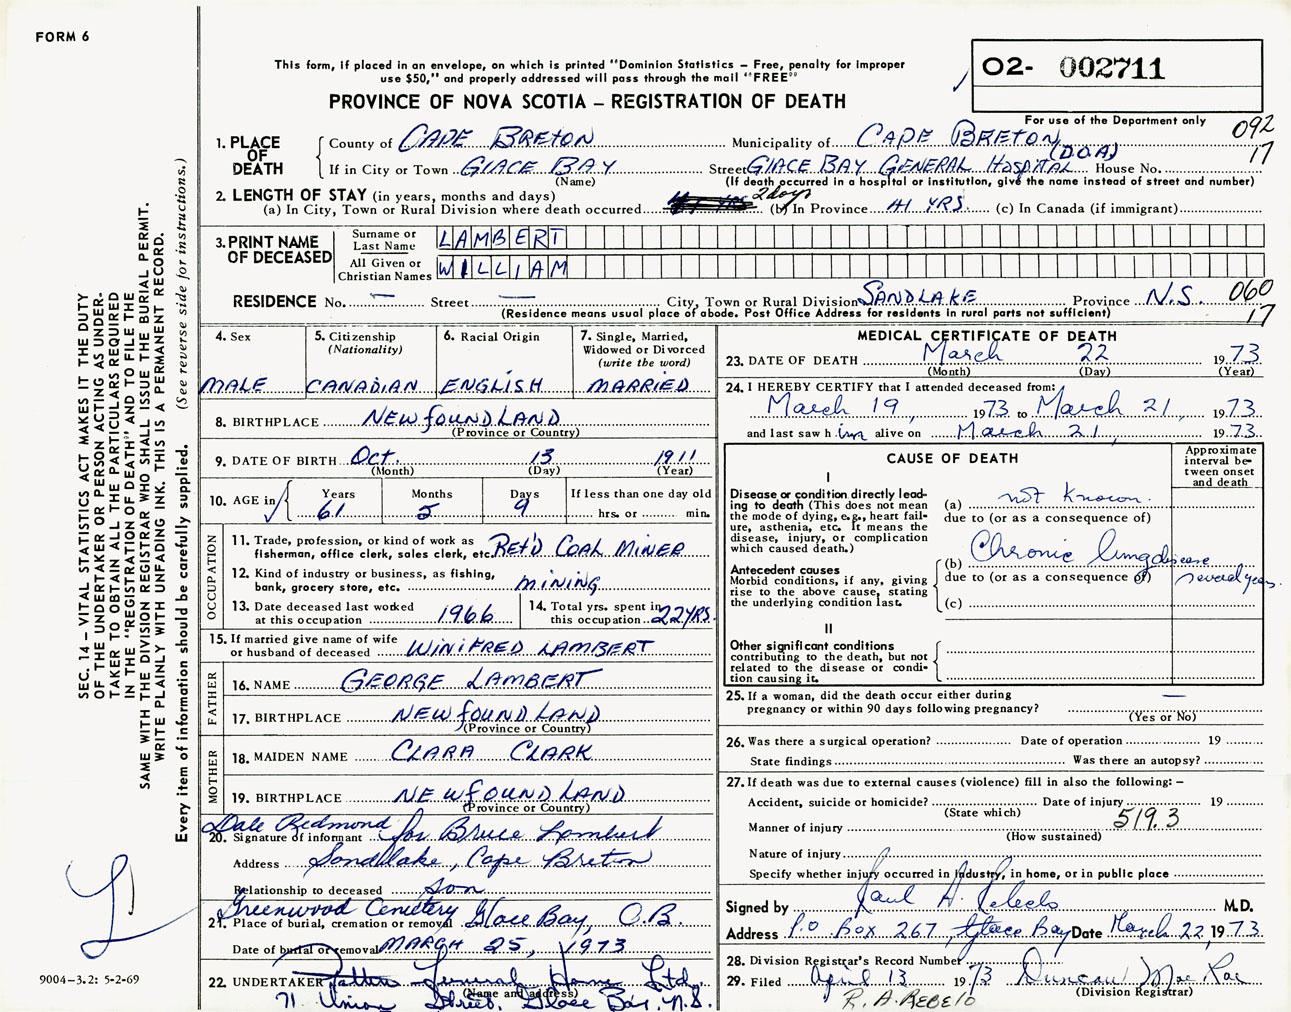 FORM 6
This form, if placed in an envelope, on which is printed "Dominion Statistics – Free, penalty for improper
use $50," and properly addressed will pass through the mail "FREE"
PROVINCE OF NOVA SCOTIA – REGISTRATION OF DEATH
O2- 002711
For use of the Department only
092
17
1. PLACE OF DEATH
County of CAPE BRETON Municipality of CAPE BRETON
If in City or Town GLACE BAY Street GLACE BAY GENERAL HOSPITAL (D.O.A) House No.
(Name) (If death occurred in a hospital or institution, give the name instead of street and number)
2. LENGTH OF STAY (in years, months and days)
(a) In City, Town or Rural Division where death occurred 2 days (b) In Province 41 YRS. (c) In Canada (if immigrant)
3. PRINT NAME OF DECEASED
Surname or Last Name LAMBERT
All Given or Christian Names WILLIAM
RESIDENCE No. – Street – City, Town or Rural Division SANDLAKE Province N.S. 060
17
(Residence means usual place of abode. Post Office Address for residents in rural parts not sufficient)
4. Sex MALE
5. Citizenship (Nationality) CANADIAN
6. Racial Origin ENGLISH
7. Single, Married, Widowed or Divorced (write the word) MARRIED
8. BIRTHPLACE NEWfOUNDLAND
(Province or Country)
9. DATE OF BIRTH Oct. 13 1911
(Month) (Day) (Year)
10. AGE in Years 61 Months 5 Days 9 If less than one day old hrs. or min.
OCCUPATION
11. Trade, profession, or kind of work as
fisherman, office clerk, sales clerk, etc. RET'D COAL MINER
12. Kind of industry or business, as fishing,
bank, grocery store, etc. MINING
13. Date deceased last worked
at this occupation 1966
14. Total yrs. spent in
this occupation 22 YRS.
15. If married give name of wife
or husband of deceased WINIFRED LAMBERT
FATHER
16. NAME GEORGE LAMBERT
17. BIRTHPLACE NEWfOUNDLAND
(Province or Country)
MOTHER
18. MAIDEN NAME CLARA CLARK
19. BIRTHPLACE NEWfOUNDLAND
(Province or Country)
Dale Redmond for Bruce Lambert
20. Signature of informant
Address Sandlake, Cape Breton
Relationship to deceased son
Greenwood Cemetery Glace Bay, C.B.
21. Place of burial, cremation or removal
Date of burial or removal MARCH 25, 1973
22. UNDERTAKER Funeral Home Ltd.
(Name and address)
71 Union Street, Glace Bay, N.S.
MEDICAL CERTIFICATE OF DEATH
23. DATE OF DEATH March 22 1973
(Month) (Day) (Year)
24. I HEREBY CERTIFY that I attended deceased from:
March 19, 1973 to March 21, 1973
and last saw him alive on March 21, 1973
CAUSE OF DEATH
Approximate interval between onset and death
I
Disease or condition directly leading to death (This does not mean the mode of dying, e.g., heart failure, asthenia, etc. It means the disease, injury, or complication which caused death.)
(a) not known.
due to (or as a consequence of)
Antecedent causes
Morbid conditions, if any, giving rise to the above cause, stating the underlying condition last.
(b) Chronic lung disease several years.
due to (or as a consequence of)
(c)
II
Other significant conditions
contributing to the death, but not related to the disease or condition causing it.
25. If a woman, did the death occur either during
pregnancy or within 90 days following pregnancy? –
(Yes or No)
26. Was there a surgical operation? Date of operation 19
State findings Was there an autopsy?
27. If death was due to external causes (violence) fill in also the following: –
Accident, suicide or homicide? Date of injury 19
(State which)
519.3
Manner of injury
(How sustained)
Nature of injury
Specify whether injury occurred in Industry, in home, or in public place
Signed by Paul A. M.D.
Address P.O Box 267, Glace Bay Date March 22, 1973.
28. Division Registrar's Record Number
29. Filed April 13 1973 Duncan Mac Rae
(Division Registrar)
R. A. REBELO
SEC. 14 – VITAL STATISTICS ACT MAKES IT THE DUTY
OF THE UNDERTAKER OR PERSON ACTING AS UNDER-
TAKER TO OBTAIN ALL THE PARTICULARS REQUIRED
IN THE "REGISTRATION OF DEATH" AND TO FILE THE
SAME WITH THE DIVISION REGISTRAR WHO SHALL ISSUE THE BURIAL PERMIT.
WRITE PLAINLY WITH UNFADING INK. THIS IS A PERMANENT RECORD.
Every item of information should be carefully supplied. (See reverse side for instructions.)
L
9004–3.2: 5-2-69